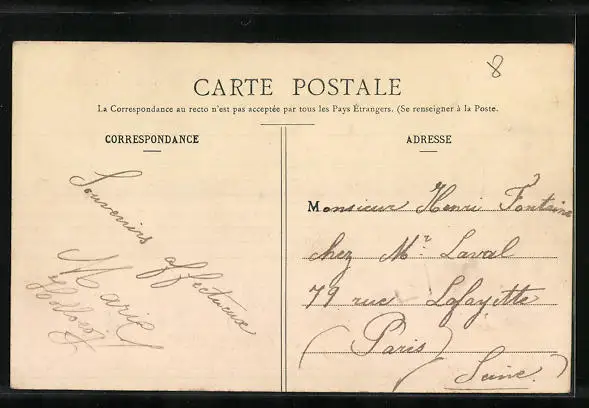 8
CARTE POSTALE
La Correspondance au recto n'est pas acceptée par tous les Pays Étrangers. (Se renseigner à la Poste.
CORRESPONDANCE
ADRESSE
Souvenirs affectueux
Marie
Monsieur Henri Fontaine
chez Mr. Laval
79 rue Lafayette
(Paris)
Seine.